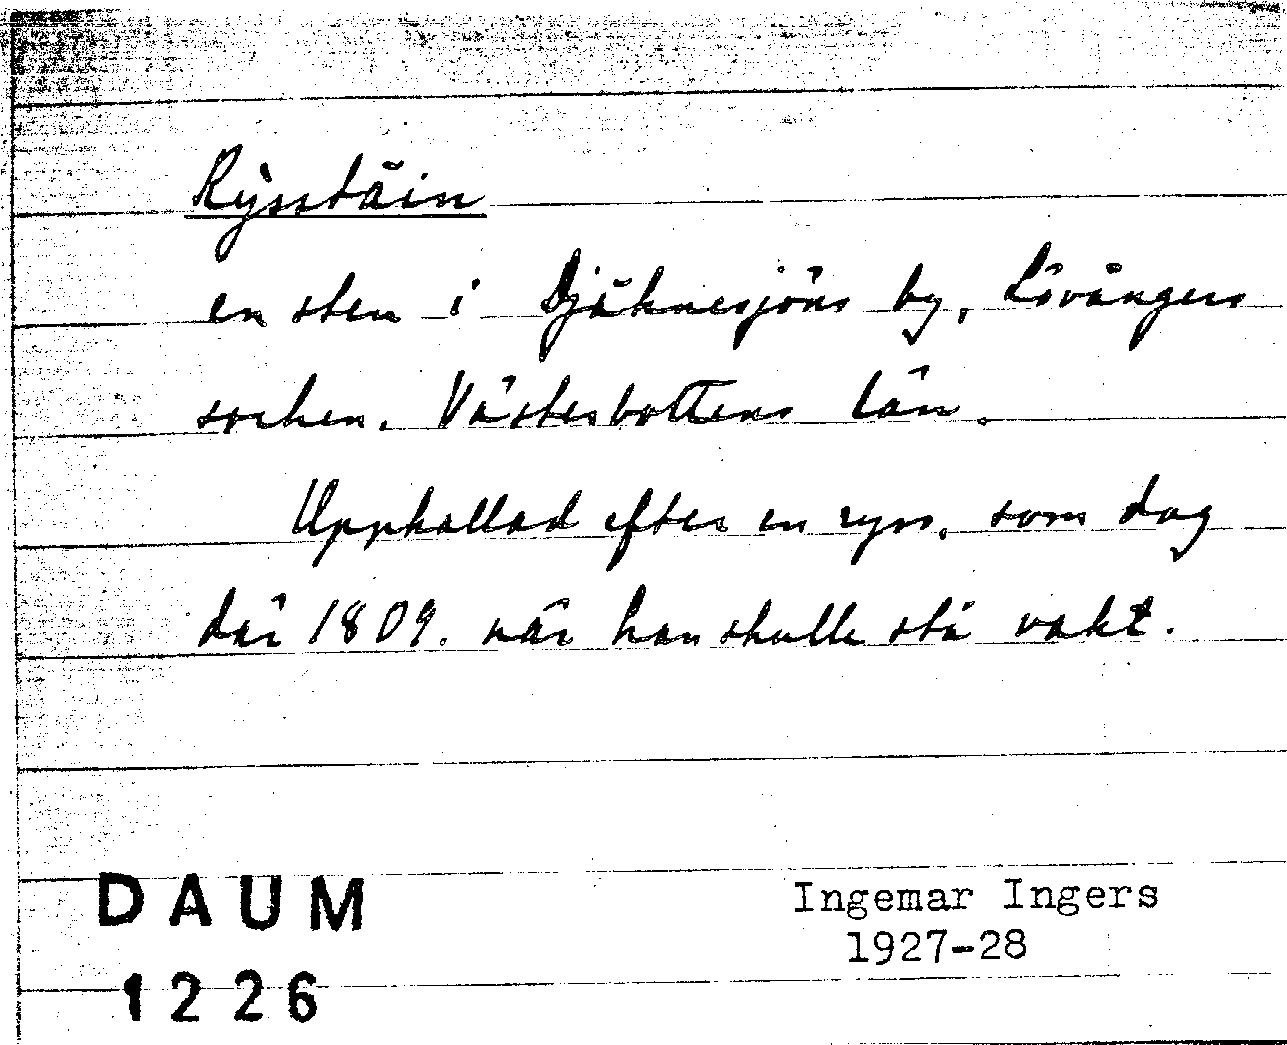 Rysstäin
en sten i Djäknesjöns by, Lövångers
socken. Västerbottens län.
Uppkallad efter en ryss, som dog
där 1809. när han skulle stå vakt.
DAUM
1226
Ingemar Ingers
1927-28